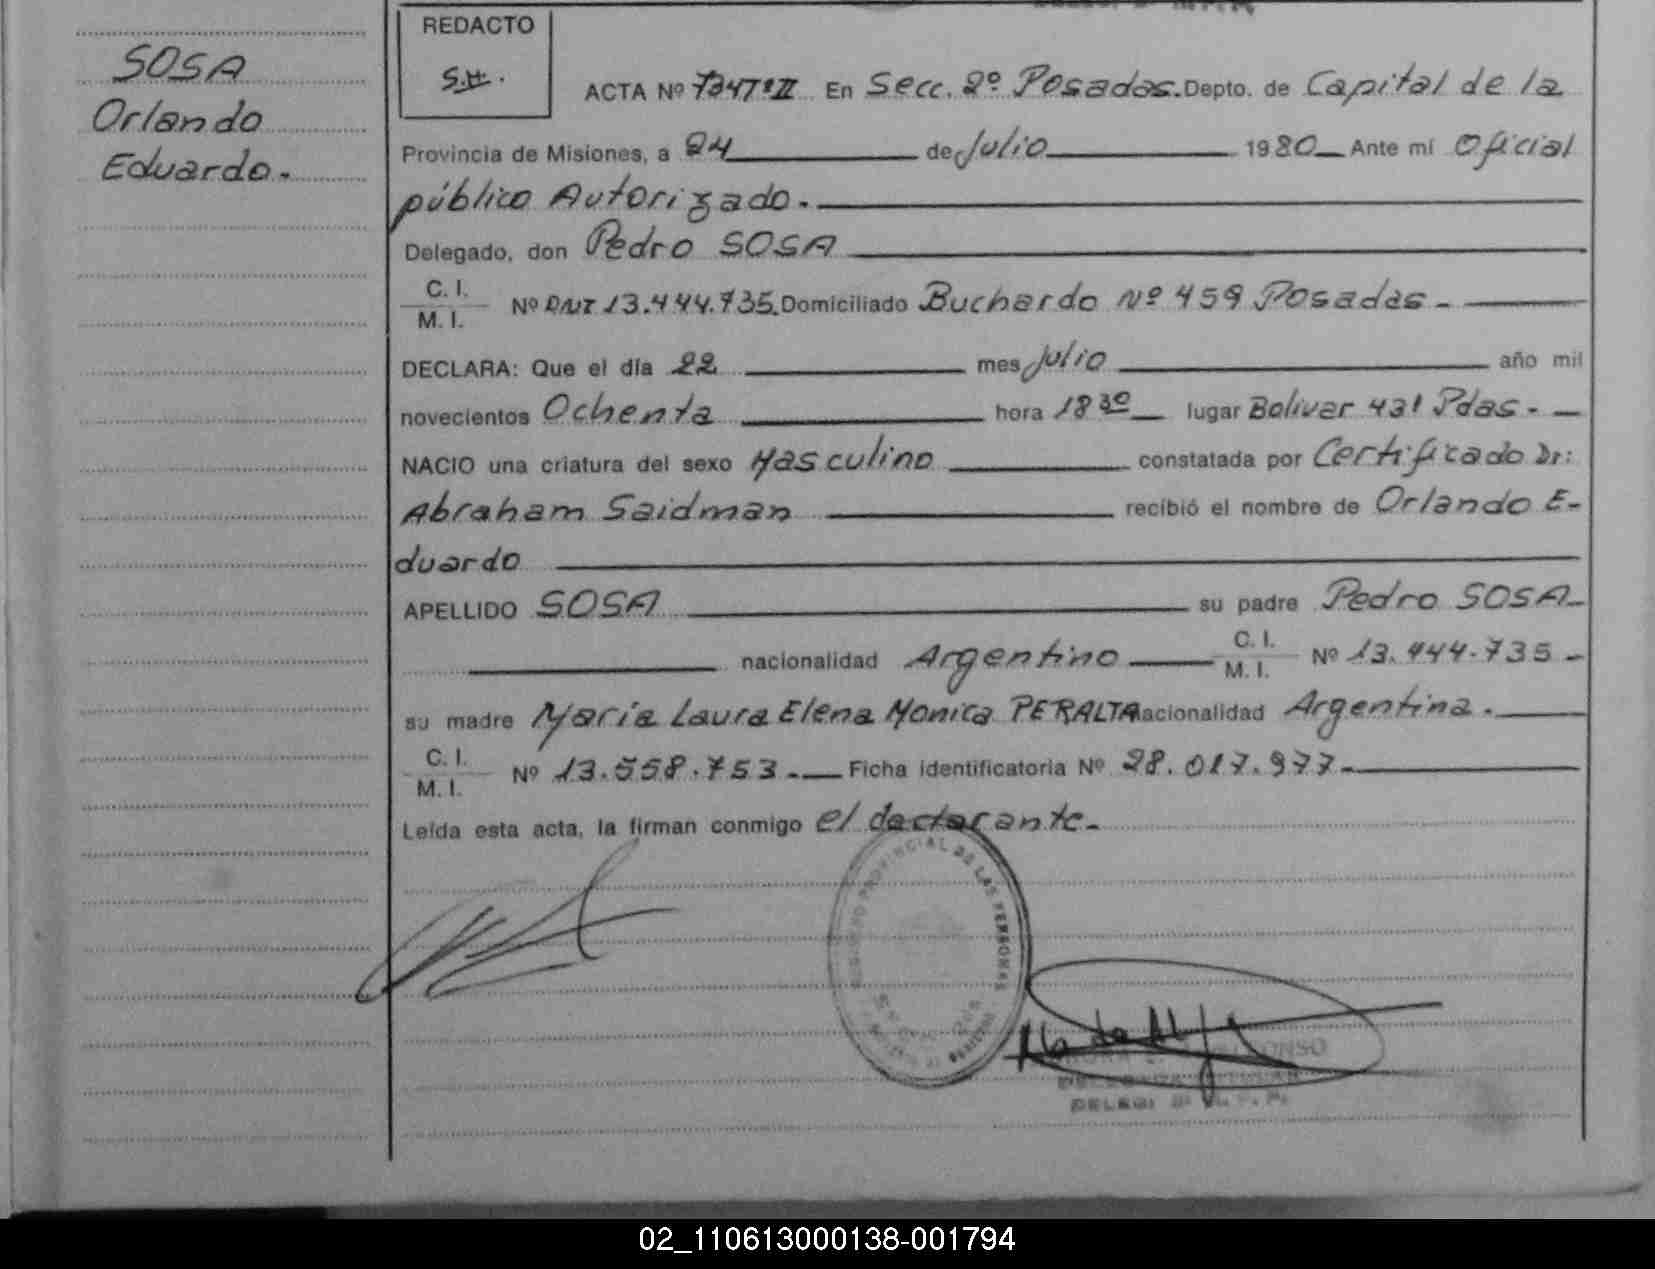 SOSA
Orlando
Eduardo.
REDACTO
S.H.
ACTA Nº 7347ºII En Secc. 2º Posadas. Depto. de Capital de la
Provincia de Misiones, a 24 de Julio 1980 Ante mí Oficial
público Autorizado.
Delegado, don Pedro SOSA
C. I.
M. I.
Nº DNI 13.444.735. Domiciliado Buchardo Nº 459 Posadas -
DECLARA: Que el día 22 mes Julio año mil
novecientos Ochenta hora 18 30 lugar Bolivar 431 Pdas. -
NACIO una criatura del sexo Masculino constatada por Certificado Dr:
Abraham Saidman recibió el nombre de Orlando E-
duardo
APELLIDO SOSA su padre Pedro SOSA-
nacionalidad Argentino C. I.
M. I.
Nº 13.444.735 -
su madre María Laura Elena Monica PERALTA nacionalidad Argentina.
C. I.
M. I.
Nº 13.558.753.- Ficha identificatoria Nº 28.017.977-
Leída esta acta, la firman conmigo el declarante.
PROVINCIAL DE LAS PERSONAS
02_110613000138-001794